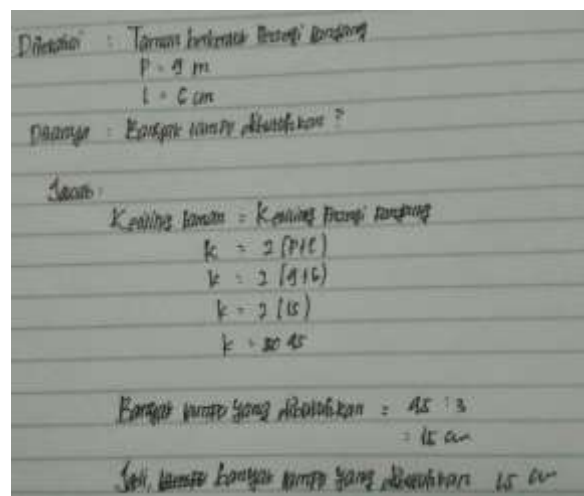 Diketahui : Taman berbentuk Persegi panjang
P = 9 m
l = 6 cm
Ditanya : Banyak lampu dibutuhkan ?
Jawab :
Keliling taman = Keliling Persegi panjang
k = 2 (P+l)
k = 2 (9+6)
k = 2 (15)
k = 45
Banyak lampu yang dibutuhkan = 45 : 3
= 15 cm
Jadi, banyak lampu yang dibutuhkan 15 cm